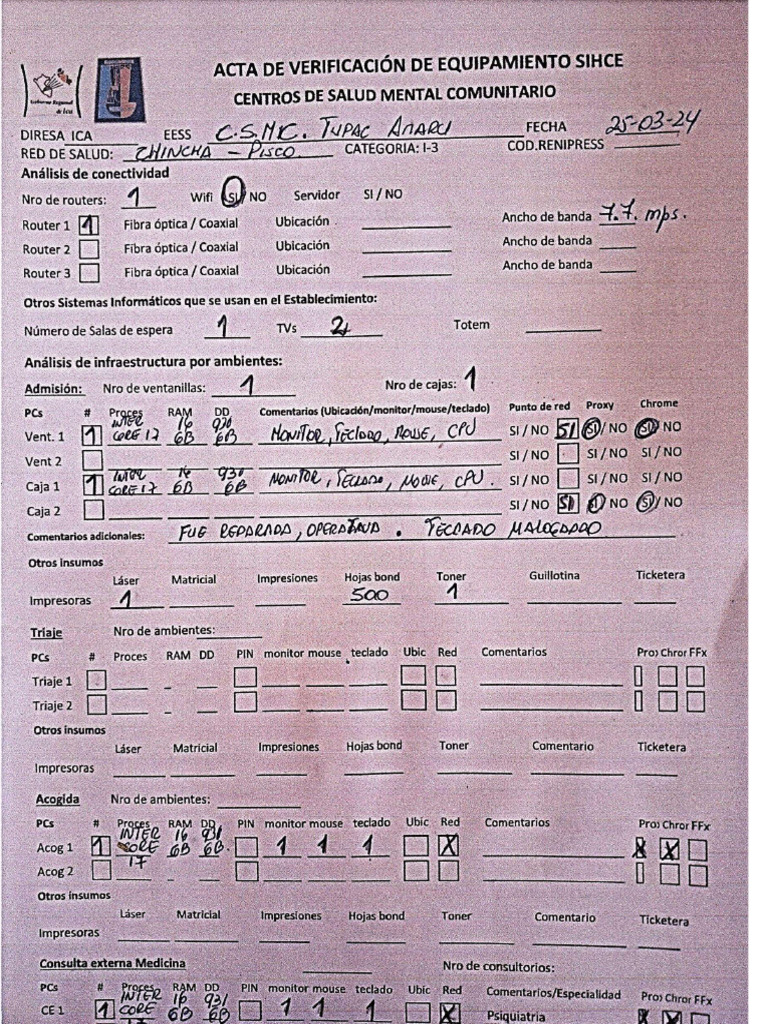 ACTA DE VERIFICACIÓN DE EQUIPAMIENTO SIHCE
CENTROS DE SALUD MENTAL COMUNITARIO
Gobierno Regional de Ica
DIRESA ICA EESS C.S.M.C. TUPAC AMARU FECHA 25-03-24
RED DE SALUD: CHINCHA - PISCO CATEGORIA: I-3 COD.RENIPRESS
Análisis de conectividad
Nro de routers: 1 Wifi SI/ NO Servidor SI / NO
Router 1 1 Fibra óptica / Coaxial Ubicación Ancho de banda 7.7. mps.
Router 2 Fibra óptica / Coaxial Ubicación Ancho de banda
Router 3 Fibra óptica / Coaxial Ubicación Ancho de banda
Otros Sistemas Informáticos que se usan en el Establecimiento:
Número de Salas de espera 1 TVs 2 Totem
Análisis de infraestructura por ambientes:
Admisión: Nro de ventanillas: 1 Nro de cajas: 1
PCs # Proces RAM DD Comentarios (Ubicación/monitor/mouse/teclado) Punto de red Proxy Chrome
INTER 16
Vent. 1 1 CORE 17 GB GB MONITOR, TECLADO, MOUSE, CPU SI / NO SI SI / NO SI / NO
Vent 2 SI / NO SI / NO SI / NO
INTER 16 931
Caja 1 1 CORE 17 GB GB MONITOR, TECLADO, MOUSE, CPU. SI / NO SI / NO SI / NO
Caja 2 SI / NO SI SI / NO SI / NO
Comentarios adicionales: FUE REPARADA, OPERATIVA. TECLADO MALOGRADO
Otros insumos
Láser Matricial Impresiones Hojas bond Toner Guillotina Ticketera
Impresoras 1 500 1
Triaje Nro de ambientes:
PCs # Proces RAM DD PIN monitor mouse teclado Ubic Red Comentarios Pro: Chror FFx
Triaje 1
Triaje 2
Otros insumos
Láser Matricial Impresiones Hojas bond Toner Comentario Ticketera
Impresoras
Acogida Nro de ambientes:
PCs # Proces RAM DD PIN monitor mouse teclado Ubic Red Comentarios Pro: Chror FFx
INTER 16 931
Acog 1 1 CORE GB GB. 1 1 1 X X X
17
Acog 2
Otros insumos
Láser Matricial Impresiones Hojas bond Toner Comentario Ticketera
Impresoras
Consulta externa Medicina Nro de consultorios:
PCs # Proces RAM DD PIN monitor mouse teclado Ubic Red Comentarios/Especialidad Pro: Chror FFx
INTER 16 931
CE 1 1 CORE GB GB 1 1 1 X Psiquiatria X X
17